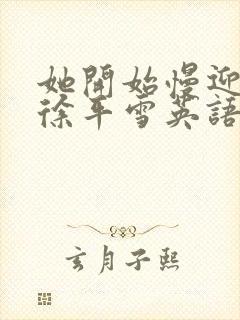 她開始慢迎
徐平雪英語
玄月子熙